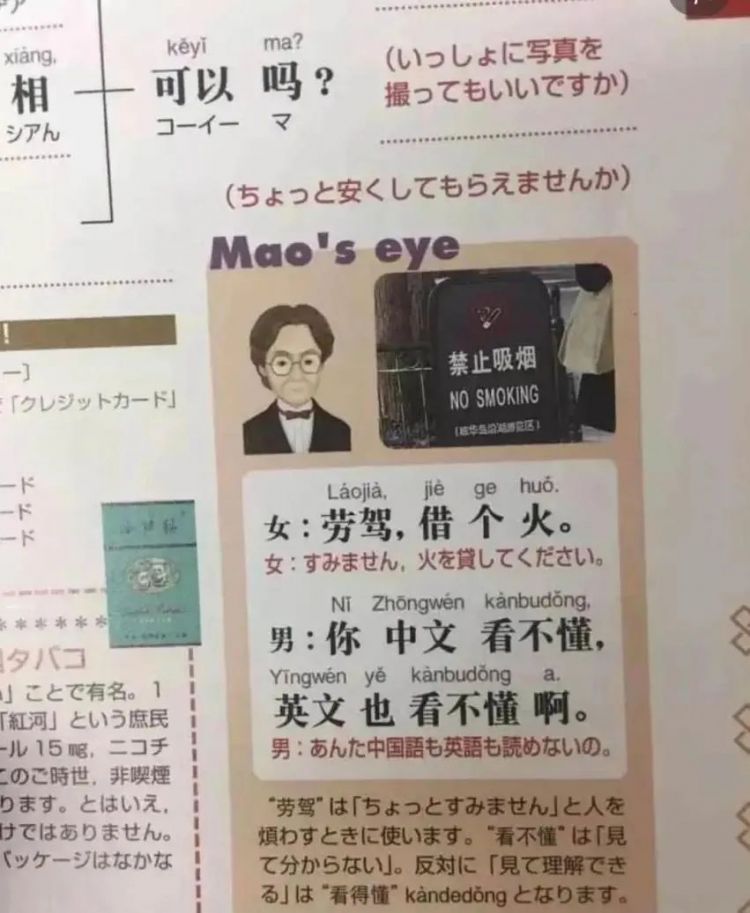 xiàng,
kěyǐ ma?
相
可以 吗?
シアん
コーイー マ
(いっしょに写真を
撮ってもいいですか)
(ちょっと安くしてもらえませんか)
Mao's eye
!
ー]
「クレジットカード」
ード
ード
ード
禁止吸烟
NO SMOKING
Láojià, jiè ge huǒ.
女:劳驾,借 个 火。
女:すみません,火を貸してください。
Nǐ Zhōngwén kànbudǒng,
男:你 中文 看不懂,
Yīngwén yě kànbudǒng a.
英文 也 看不懂 啊。
男:あんた中国語も英語も読めないの。
******
タバコ
」ことで有名。1
「紅河」という庶民
ール 15 ㎎,ニコチ
このご時世,非喫煙
ります。とはいえ,
けではありません。
パッケージはなかな
"劳驾"は「ちょっとすみません」と人を
煩わすときに使います。"看不懂"は「見
て分からない」。反対に「見て理解でき
る」は "看得懂" kàndedǒng となります。